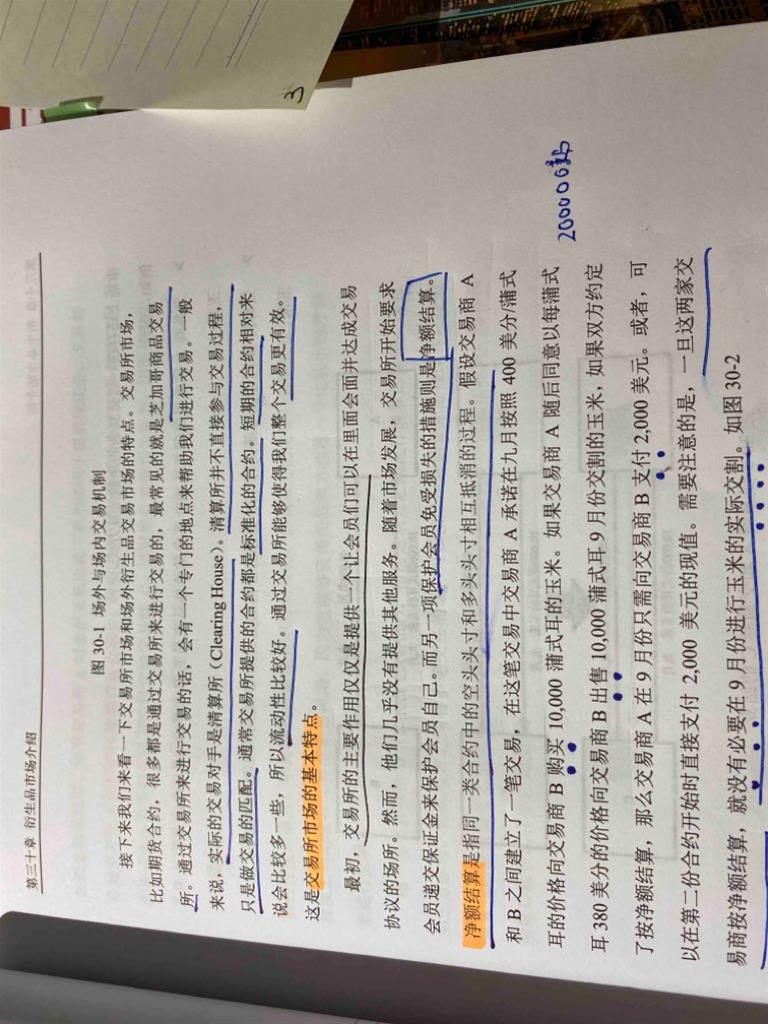 3
第三十章 衍生品市场介绍
图 30-1 场外与场内交易机制
接下来我们来看一下交易所市场和场外衍生品交易市场的特点。交易所市场，
比如期货合约，很多都是通过交易所来进行交易的，最常见的就是芝加哥商品交易
所。通过交易所来进行交易的话，会有一个专门的地点来帮助我们进行交易。一般
来说，实际的交易对手是清算所（Clearing House）。清算所并不直接参与交易过程，
只是做交易的匹配。通常交易所提供的合约都是标准化的合约。短期的合约相对来
说会比较多一些，所以流动性比较好。通过交易所能够使得我们整个交易更有效。
这是交易所市场的基本特点。
最初，交易所的主要作用仅仅是提供一个让会员们可以在里面会面并达成交易
协议的场所。然而，他们几乎没有提供其他服务。随着市场发展，交易所开始要求
会员递交保证金来保护会员自己。而另一项保护会员免受损失的措施则是净额结算。
净额结算是指同一类合约中的空头头寸和多头头寸相互抵消的过程。假设交易商 A
和 B 之间建立了一笔交易，在这笔交易中交易商 A 承诺在九月按照 400 美分/蒲式
耳的价格向交易商 B 购买 10,000 蒲式耳的玉米。如果交易商 A 随后同意以每蒲式
耳 380 美分的价格向交易商 B 出售 10,000 蒲式耳 9 月份交割的玉米，如果双方约定
了按净额结算，那么交易商 A 在 9 月份只需向交易商 B 支付 2,000 美元。或者，可
以在第二份合约开始时直接支付 2,000 美元的现值。需要注意的是，一旦这两家交
易商按净额结算，就没有必要在 9 月份进行玉米的实际交割。如图 30-2